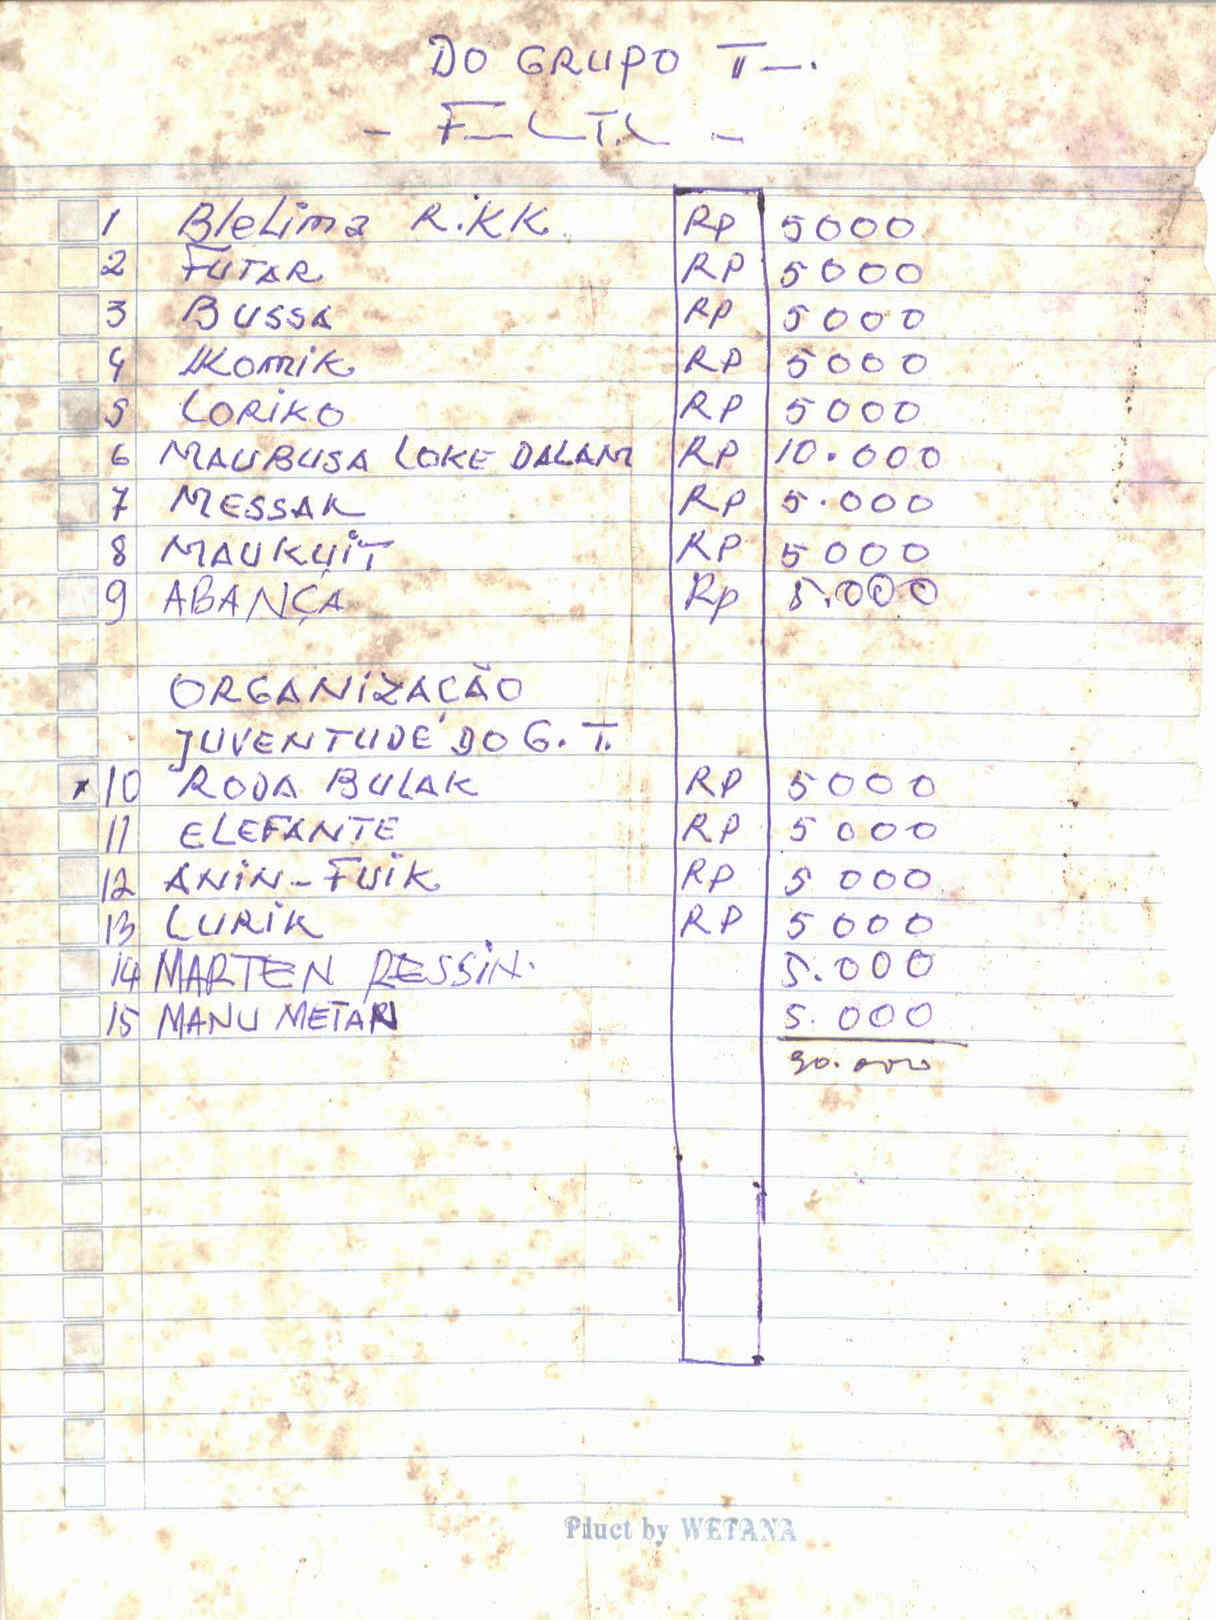 DO GRUPO T—.
- F—LT.L -
1 B/eLima R.KK. Rp 5000
2 FUTAR RP 5000
3 BUSSA RP 5000
4 Komik RP 5000
5 LORIKO RP 5000
6 MAUBUSA LOKE DALAM RP 10.000
7 MESSAK RP 5.000
8 MAUKUIT RP 5000
9 ABANÇA Rp 5.000
ORGANIZAÇÃO
JUVENTUDE DO G. T.
10 RODA BULAK RP 5000
11 ELEFANTE RP 5000
12 ANIN-FUIK RP 5 000
13 LURIK RP 5000
14 MARTEN RESSIN. 5.000
15 MANU METAN 5.000
90.000
Pduct by WETANA